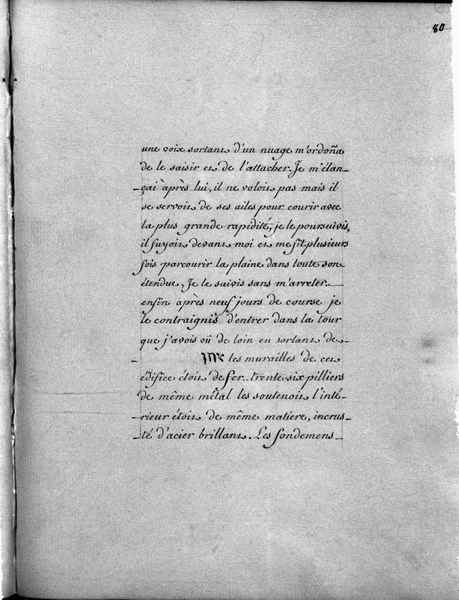 80
une voix sortant d'un nuage m'ordoña
de le saisir et de l'attacher. Je m'élan_
_çai après lui, il ne voloit pas mais il
se servoit de ses ailes pour courir avec
la plus grande rapidité; je le poursuivis,
il fuyoit devant moi et me fit plusieurs
fois parcourir la plaine dans toute son
étendue. Je le suivis sans m'arreter
enfin après neuf jours de course je
le contraignis d'entrer dans la tour
que j'avois vü de loin en sortant de
les murailles de cet
édifice étoit de fer. trente six pilliers
de même métal les soutenoit l'inté_
_rieur étoit de même matiere, incrus_
_té d'acier brillant. Les fondemens_